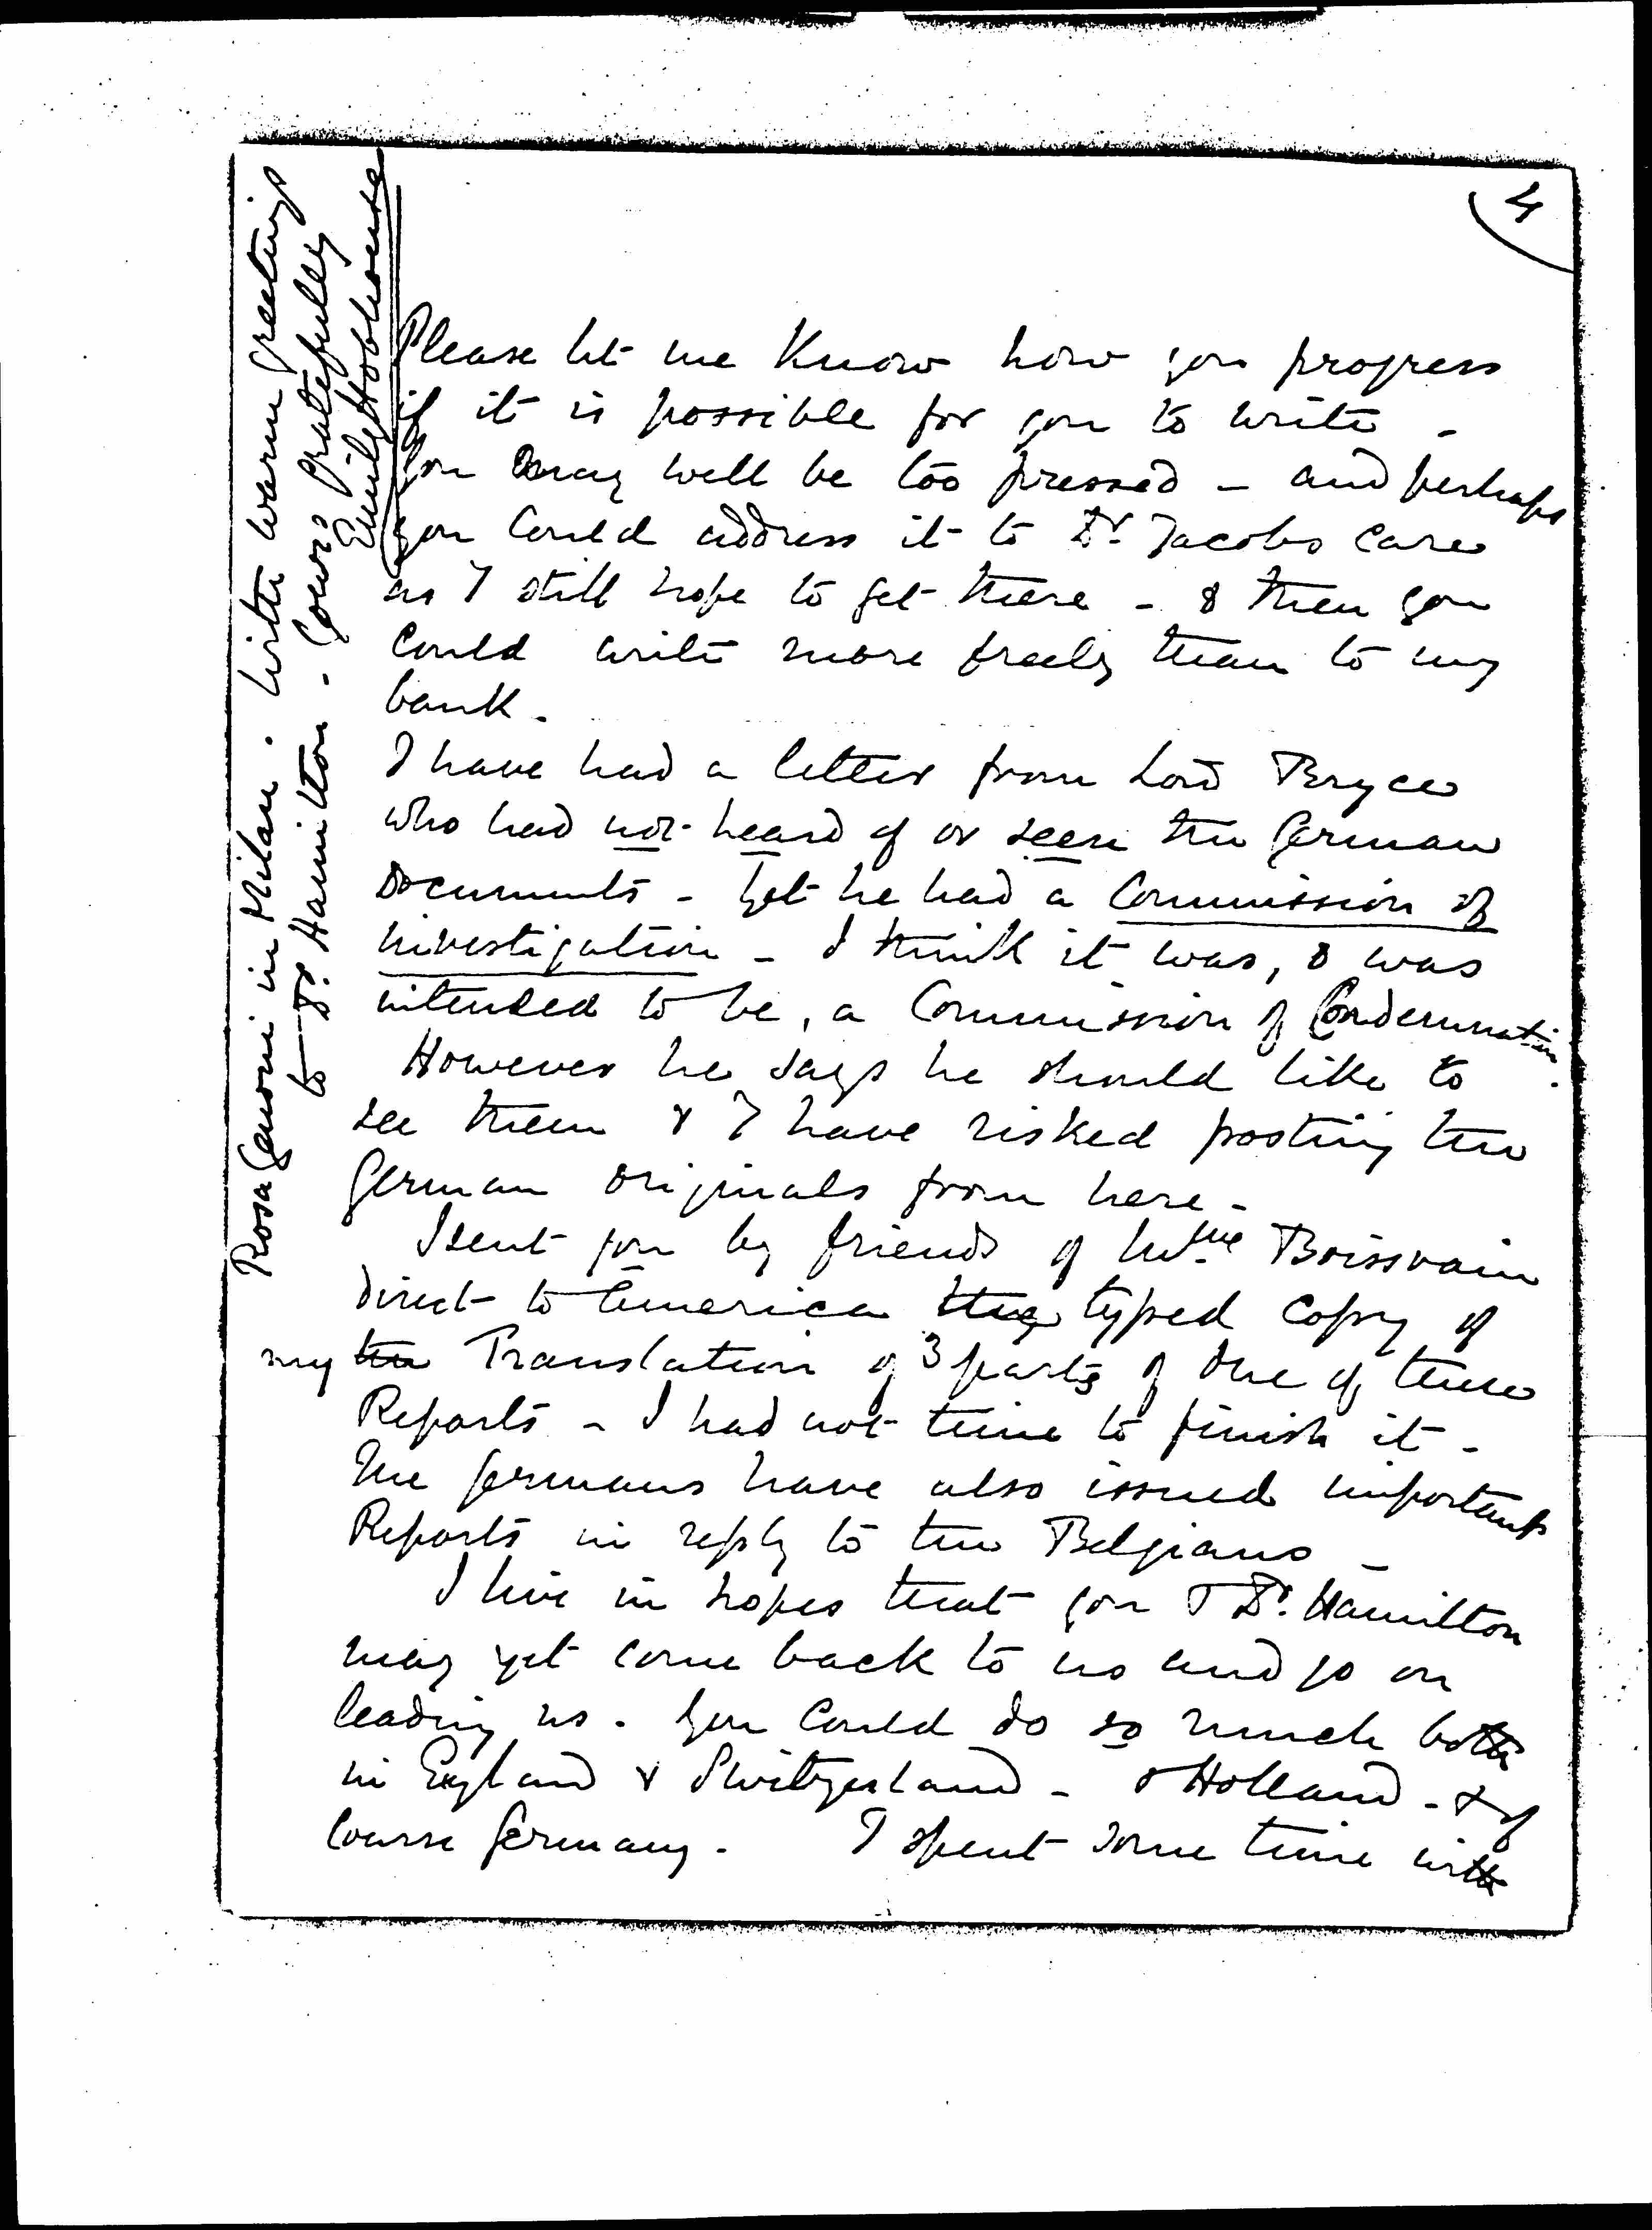 4
Please let me know how you progress
if it is possible for you to write -
You may well be too pressed - and perhaps
you could address it to Dr. Jacobs care
as I still hope to get there - & then you
could write more freely than to my
bank.
I have had a letter from Lord Bryce
who had not heard of or seen the German
Documents - Yet he had a Commission of
Investigation - I think it was, & was
intended to be, a Commission of Condemnation.
However he says he should like to
see them & I have risked posting the
German originals from here -
I sent you by friends of Mme Boissvain
direct to America the typed copy of
my the Translation of 3 parts of one of these
Reports - I had not time to finish it -
The Germans have also issued important
Reports in reply to the Belgians -
I live in hopes that you & Dr. Hamilton
may yet come back to us and go on
leading us. You could do so much both
in England & Switzerland - & Holland - & of
course Germany. I spent some time with
Rosa Genoni in Milan. With warm greetings
to Dr. Hamilton - Yours gratefully
Emily Hobhouse